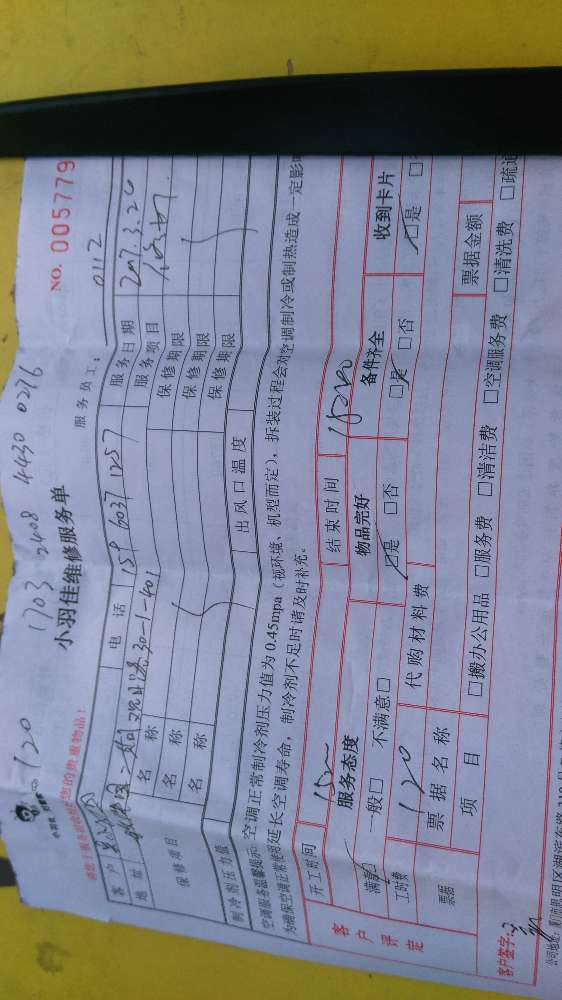 120 1703 2408 4430 0276
小羽佳维修服务单
NO. 005779
您的贵重物品！
服务员工： 0112
客户 电话 159 6037 1257 服务日期 2017.3.26
地址 30-1-401 服务项目
保修项目 名称 保修期限
名称 保修期限
名称 保修期限
制冷剂压力值 出风口温度
空调服务温馨提示：空调正常制冷剂压力值为0.45mpa（视环境、机型而定），拆装过程会对空调制冷或制热造成一定影
为确保空调正常使用延长空调寿命，制冷剂不足时请及时补充。
开工时间 结束时间
客户评定
服务态度 物品完好 备件齐全 收到卡片
满意 一般□ 不满意□ □是 □否 □是 □否 □是
工时费 120 代购材料费
票据 票据名称 票据金额
项目 □搬办公用品 □服务费 □清洁费 □空调服务费 □清洗费 □疏通
客户签字：